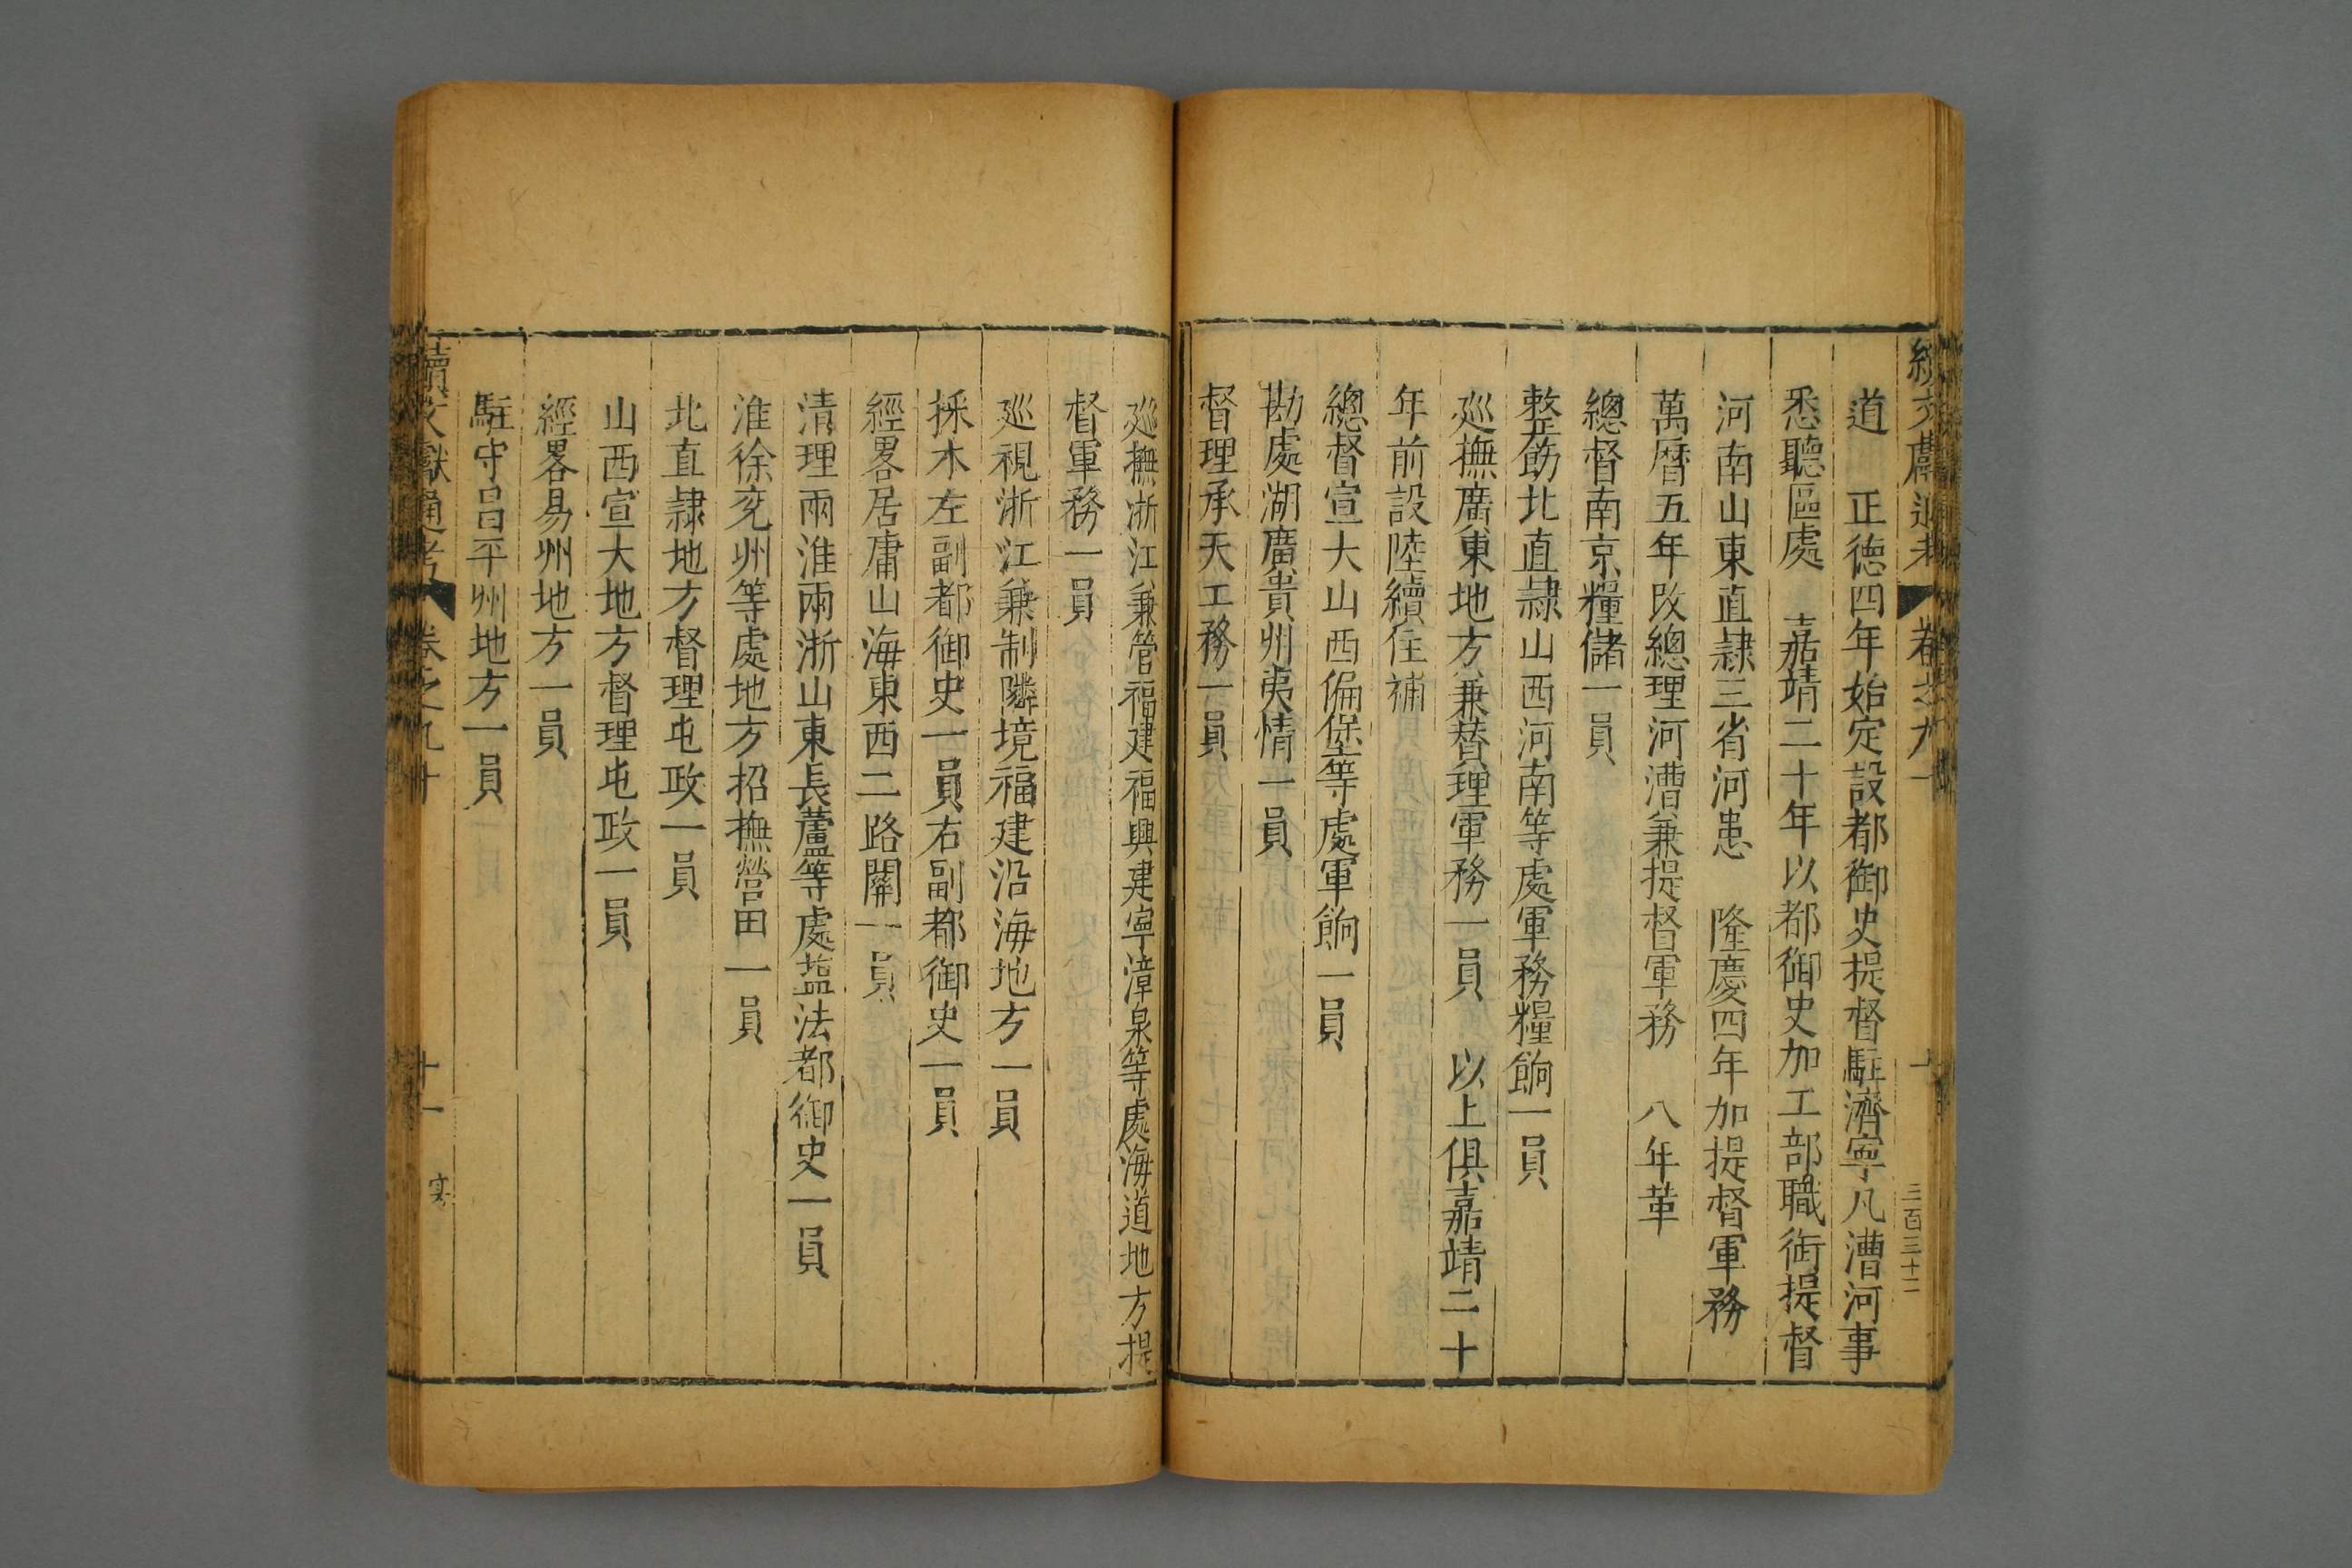 續文獻通考 卷之九十 三百三十二
道 正德四年始定設都御史提督駐濟寧凡漕河事
悉聽區處 嘉靖二十年以都御史加工部職銜提督
河南山東直隷三省河患 隆慶四年加提督軍務
萬曆五年改總理河漕兼提督軍務 八年革
總督南京糧儲一員
整飭北直隷山西河南等處軍務糧餉一員
廵撫廣東地方兼賛理軍務一員 以上俱嘉靖二十
年前設陸續住補
總督宣大山西偏保等處軍餉一員
勘處湖廣貴州夷情一員
督理承天工務一員
廵撫浙江兼管福建福興建寧漳泉等處海道地方提
督軍務一員
廵視浙江兼制隣境福建沿海地方一員
採木左副都御史一員右副都御史一員
經畧居庸山海東西二路關一員
清理兩淮兩浙山東長蘆等處盐法都御史一員
淮徐兖州等處地方招撫營田一員
北直隷地方督理屯政一員
山西宣大地方督理屯政一員
經畧易州地方一員
駐守昌平州地方一員
續文獻通考 卷之九十 十一